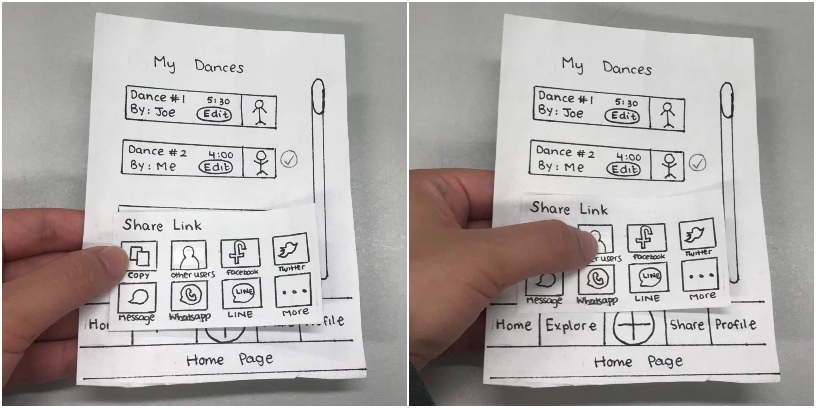 My Dances
Dance #1 5:30
By: Joe Edit
Dance #2 4:00
By: Me Edit
Share Link
COPY other users Facebook Twitter
Message Whatsapp LINE LINE More
Home Page
My Dances
Dance #1 5:30
By: Joe Edit
Dance #2 4:00
By: Me Edit
Share Link
users Facebook Twitter
Message Whatsapp LINE LINE More
Home Explore Share Profile
Home Page